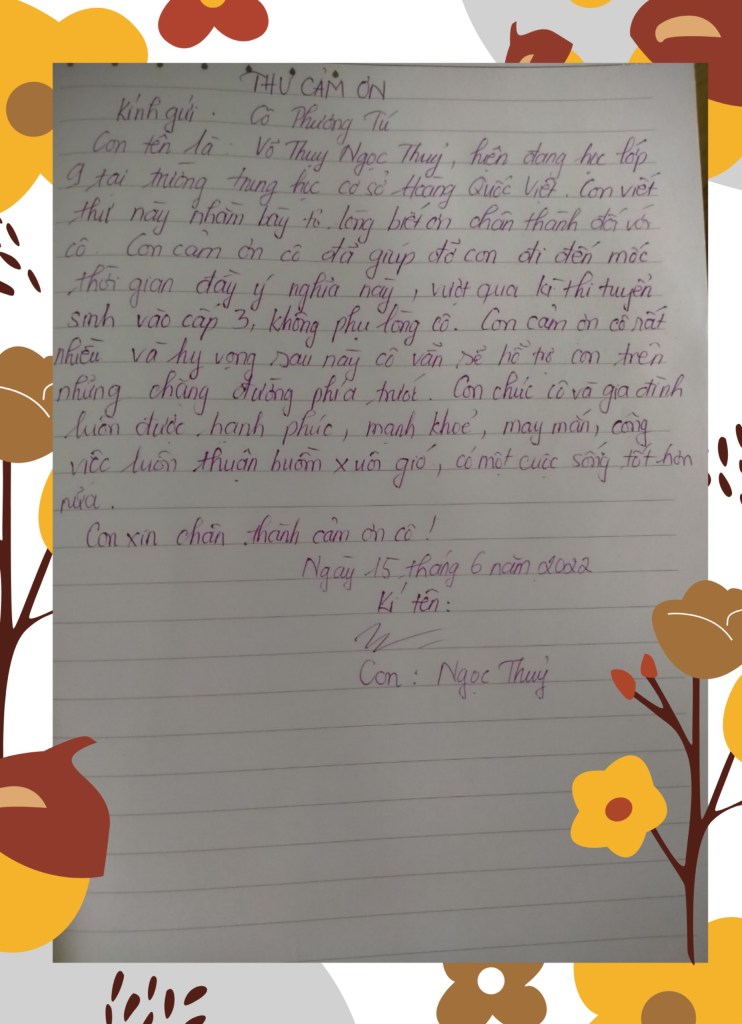 THƯ CẢM ƠN
Kính gửi. Cô Phương Tú
Con tên là: Võ Thuỵ Ngọc Thuỷ, hiện đang học lớp
9 tại trường trung học cơ sở Hoàng Quốc Việt. Con viết
thư này nhằm bày tỏ lòng biết ơn chân thành đối với
cô. Con cảm ơn cô đã giúp đỡ con đi đến mốc
thời gian đầy ý nghĩa này, vượt qua kì thi tuyển
sinh vào cấp 3, không phụ lòng cô. Con cảm ơn cô rất
nhiều và hy vọng sau này cô vẫn sẽ hỗ trợ con trên
những chặng đường phía trước. Con chúc cô và gia đình
luôn được hạnh phúc, mạnh khoẻ, may mắn, công
việc luôn thuận buồm xuôi gió, có một cuộc sống tốt hơn
nữa.
Con xin chân thành cảm ơn cô!
Ngày 15 tháng 6 năm 2022
Kí tên:
Con: Ngọc Thuỷ